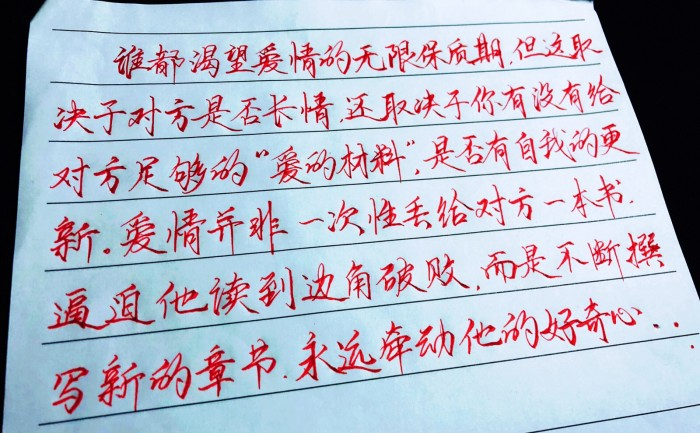 谁都渴望爱情的无限保质期.但这取
决于对方是否长情.还取决于你有没有给
对方足够的“爱的材料”,是否有自我的更
新。爱情并非一次性丢给对方一本书.
逼迫他读到边角破败,而是不断撰
写新的章节.永远牵动他的好奇心...